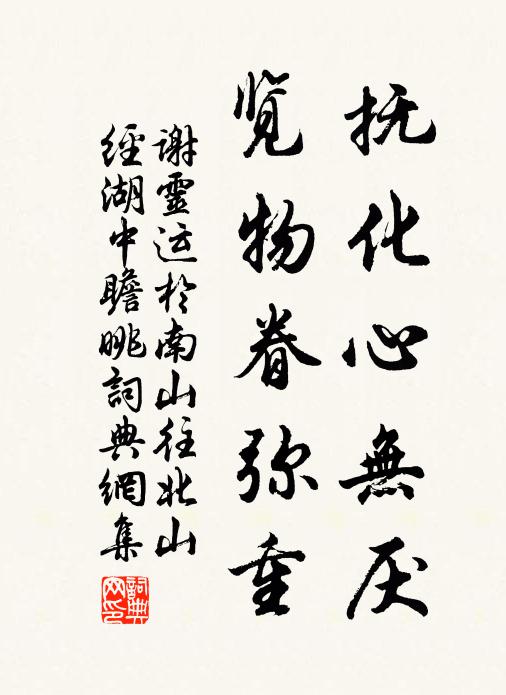 抚化心無厌
览物眷弥重
謝靈运於南山往北山
經湖中瞻眺詞典網集
詞典
网印